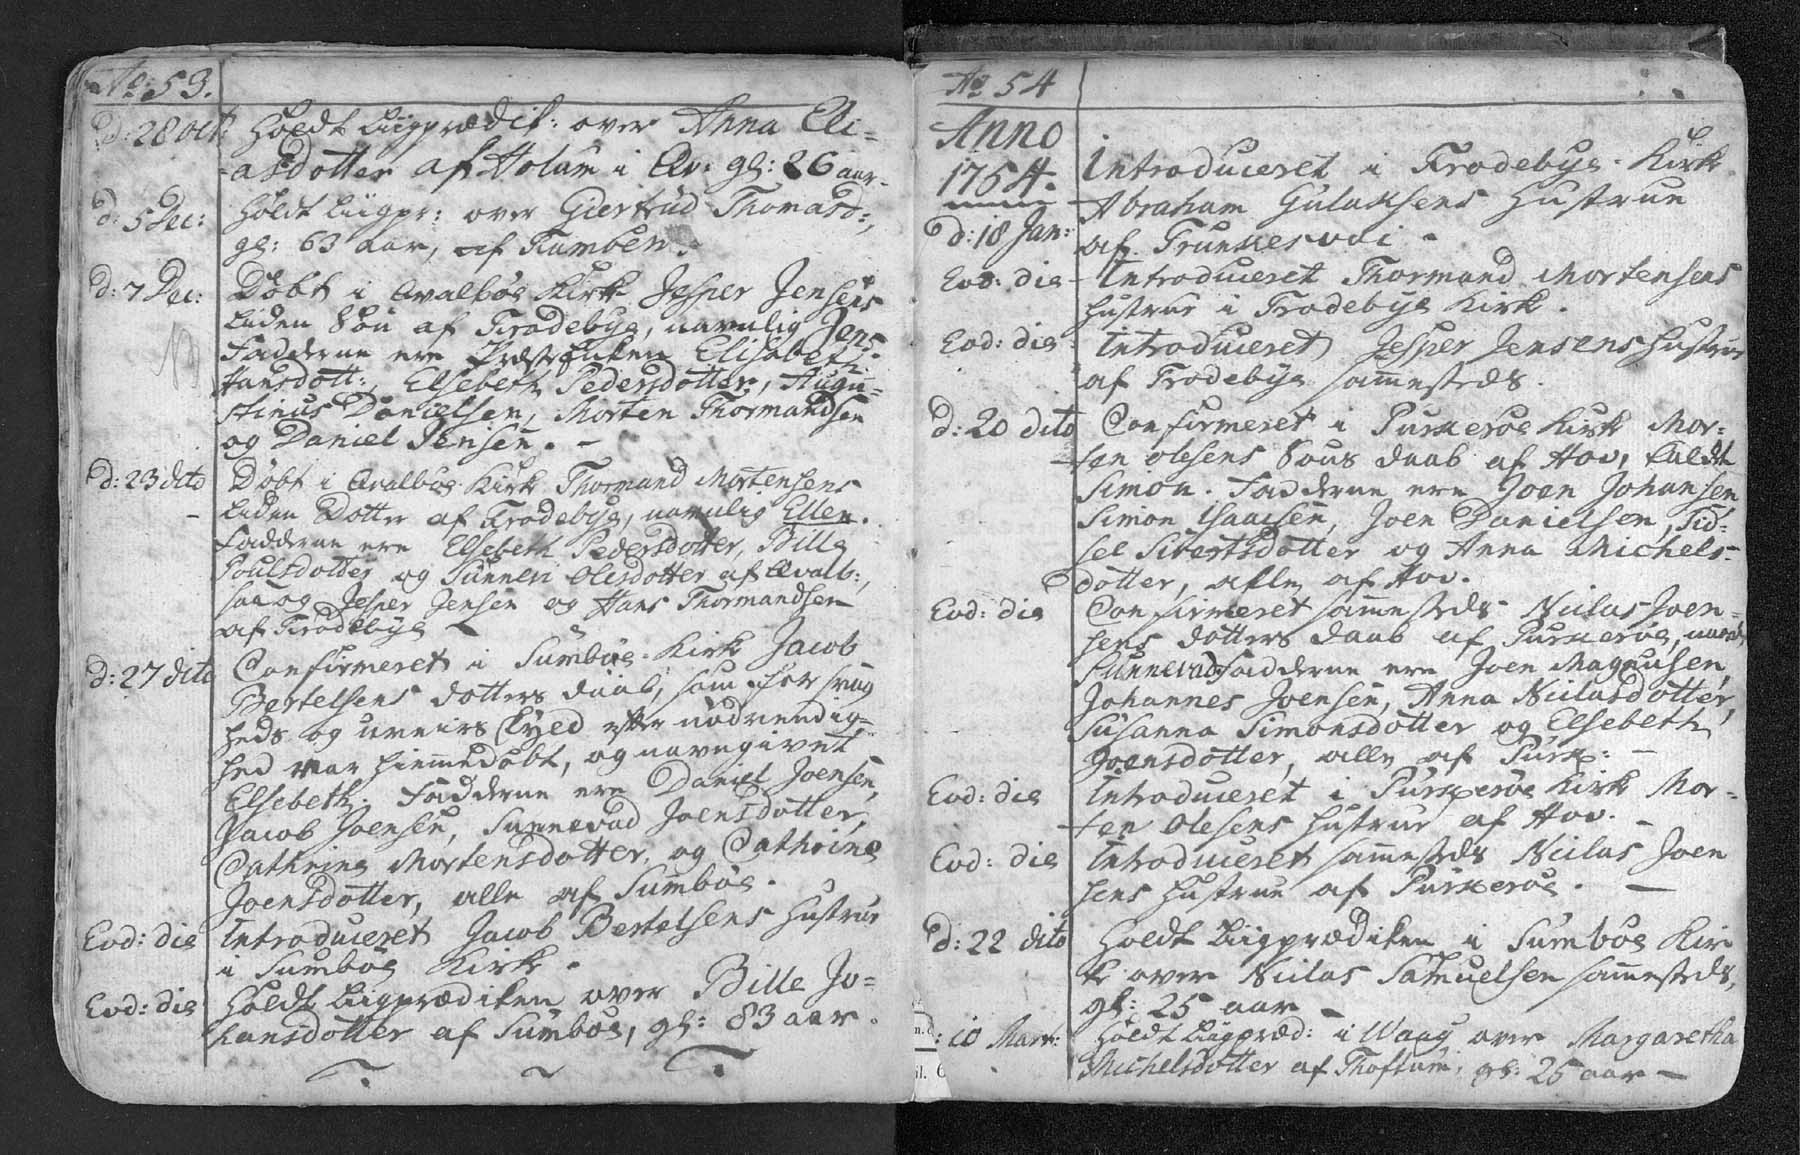 Ao: 53.
d: 28 oct: Holdt Liigprædik: over Anna Eli=
asdotter af Holum i Qv: gl: 26 aar.
d: 5 Dec: Holdt Liigpr: over Giertrud Thomasd:,
gl: 63 aar, af Famben.
d: 7 Dec: Døbt i Qvalbøe Kirke Jesper Jensens
liden Søn af Frodebye, navnlig Jens.
Fadderne ere Elisabeth
Hansdott:, Elsebeth Pedersdotter, Augu=
stinus Danielsen, Morten Thormandsen
og Daniel Jensen. -
d: 23 dito Døbt i Qvalbøe Kirk Thormand Mortensens
liden Dotter af Frodebye, navnlig Ellen.
Fadderne ere Elsebeth Pedersdotter, Bille
Poulsdotter og Sunnen Olesdotter af Qvalb:,
saa og Jesper Jensen og Hans Thormandsen
af Frodebye -
d: 27 dito Confirmeret i Sumbøe Kirk Jacob
Bertelsens dotters daab, som for svag
heds og uveirs skyld efter nødvendig=
hed var hiemmedøbt, og navngivet
Elsebeth. Fadderne ere Daniel Joensen,
Jacob Joensen, Sunnevad Joensdotter,
Cathrine Mortensdotter, og Cathrine
Joensdotter, alle af Sumbøe.
Eod: die Introduceret Jacob Bertelsens Hustrue
i Sumbøe Kirk.
Eod: die Holdt Liigprædiken over Bille Jo=
hansdotter af Sumbøe, gl: 83 aar.
Ao 54
Anno
1754.
d: 18 Jan: Introduceret i Frodebye Kirk
Abraham Gulaksens Hustrue
af Trunkesvai.
Eod: die Introduceret Thormand Mortensens
Hustrue i Frodebye Kirk.
Eod: die Introduceret Jesper Jensens Hustrue
af Frodebye sammesteds.
d: 20 dito Confirmeret i Purkerøe Kirk Mor=
ten Olesens Søns daab af Hov, kaldt
Simon. Fadderne ere Joen Johansen
Simon Isaacsen, Joen Danielsen, Sid=
sel Sivertsdotter og Anna Michels=
dotter, alle af Hov.
Eod: die Confirmeret sammesteds Niclas Joen=
sens dotters daab af Purkerøe,
Sunnevad Fadderne ere Joen Magnusen,
Johannes Joensen, Anna Niclasdotter,
Susanna Simonsdotter og Elsebeth
Joensdotter, alle af Purk: -
Eod: die Introduceret i Purkerøe Kirk Mor=
ten Olesens Hustrue af Hov. -
Eod: die Introduceret sammesteds Niclas Joen
sens Hustrue af Purkerøe. -
d: 22 dito Holdt Liigprædiken i Sumbøe Kir
k over Niclas Samuelsen sammesteds,
gl: 25 aar
: 10 Mart: Holdt Liigpræd: i Waag over Margaretha
Michelsdotter af Thoftum, gl: 25 aar -